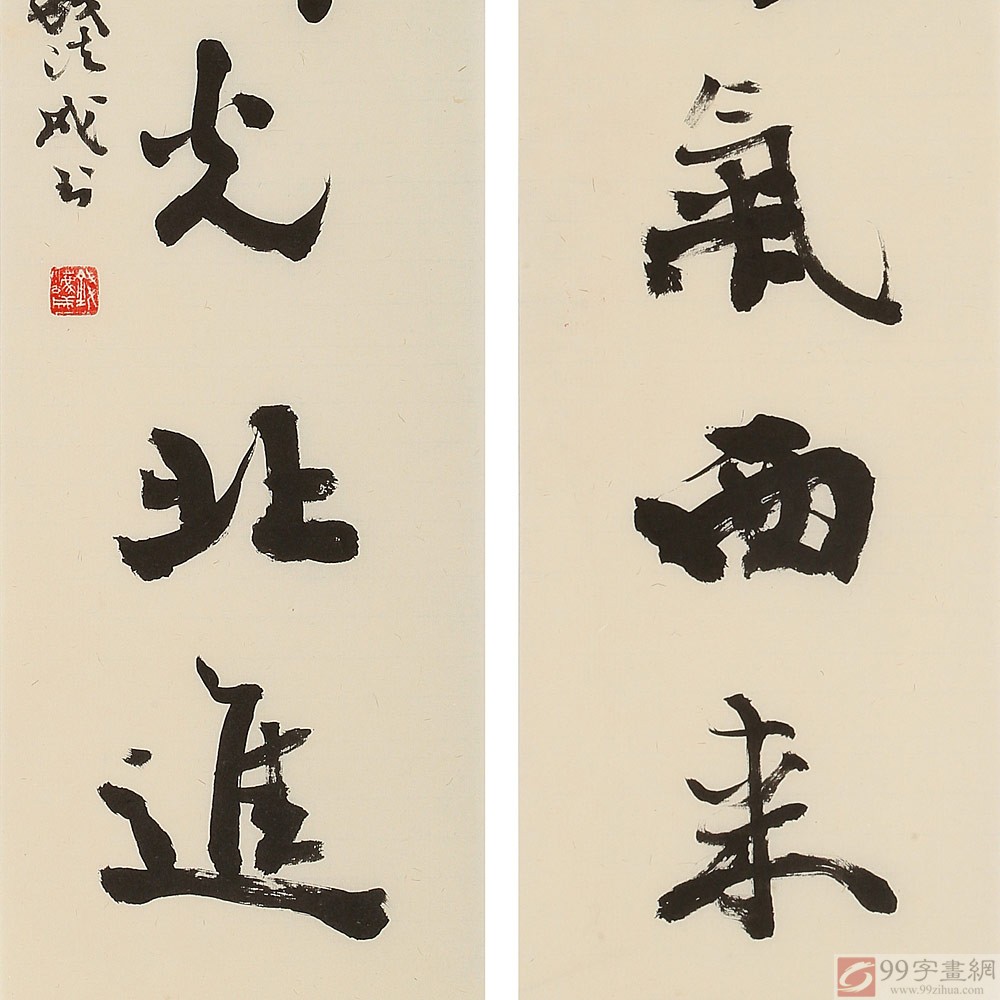 氣西来
光北進
法成公
99字畫網
www.99zihua.com